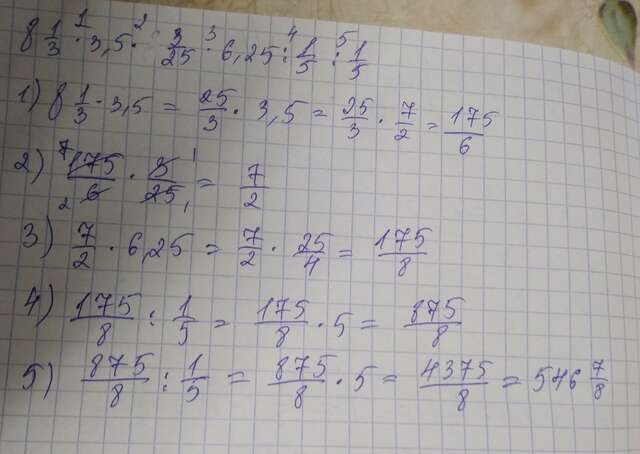 8 1/3 · 3,5 · 3/25 · 6,25 : 1/5 : 1/5
1 2 3 4 5
1) 8 1/3 · 3,5 = 25/3 · 3,5 = 25/3 · 7/2 = 175/6
2) 175/6 · 3/25 = 7/2
7 1 2 1
3) 7/2 · 6,25 = 7/2 · 25/4 = 175/8
4) 175/8 : 1/5 = 175/8 · 5 = 875/8
5) 875/8 : 1/5 = 875/8 · 5 = 4375/8 = 546 7/8